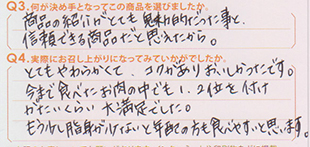 Q3.何が決め手となってこの商品を選びましたか。
商品の紹介がとても魅力的だった事と、
信頼できる商品だと思えたから。
Q4.実際にお召し上がりになってみていかがでしたか。
とてもやわらかくて、コクがありおいしかったです。
今まで食べたお肉の中でも1、2位を付け
がたいくらい大満足でした。
もう少し脂身が少ないと年配の方も食べやすいと思います。